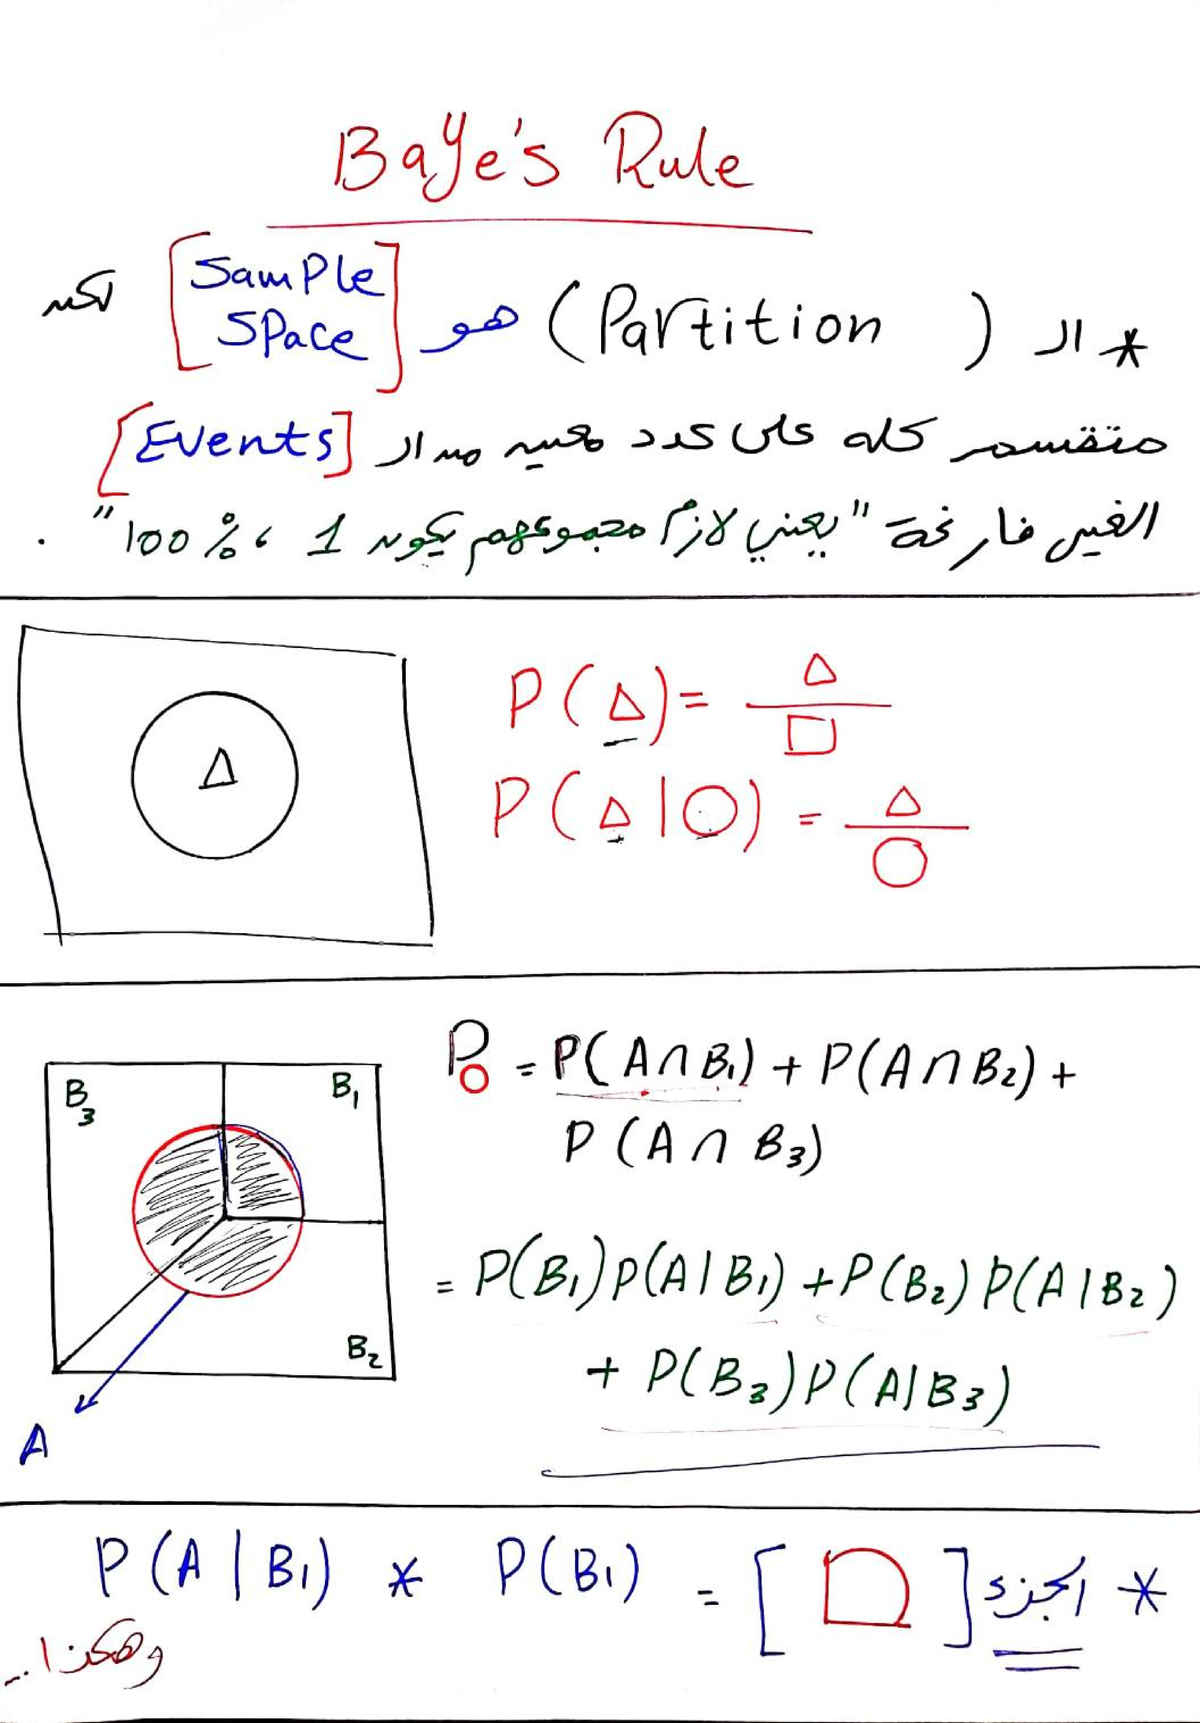 BaYe's Rule
* الـ (Partition) هو [Sample Space] لكن
متقسم كله على عدد معين من الـ [Events]
الغير فارغة "يعني لازم مجموعهم يكون 1 ، 100%" .
Δ
P(Δ) = Δ / □
P(Δ|O) = Δ / O
B3
B1
B2
A
P○ = P(A∩B1) + P(A∩B2) +
P(A∩B3)
= P(B1)P(A|B1) + P(B2)P(A|B2)
+ P(B3)P(A|B3)
* الجزء [ ] = P(A|B1) * P(B1)
وهكذا...